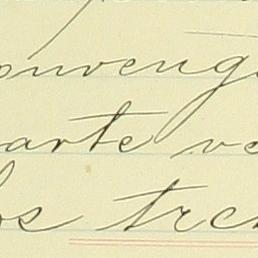 onveng
arte ve
os tre